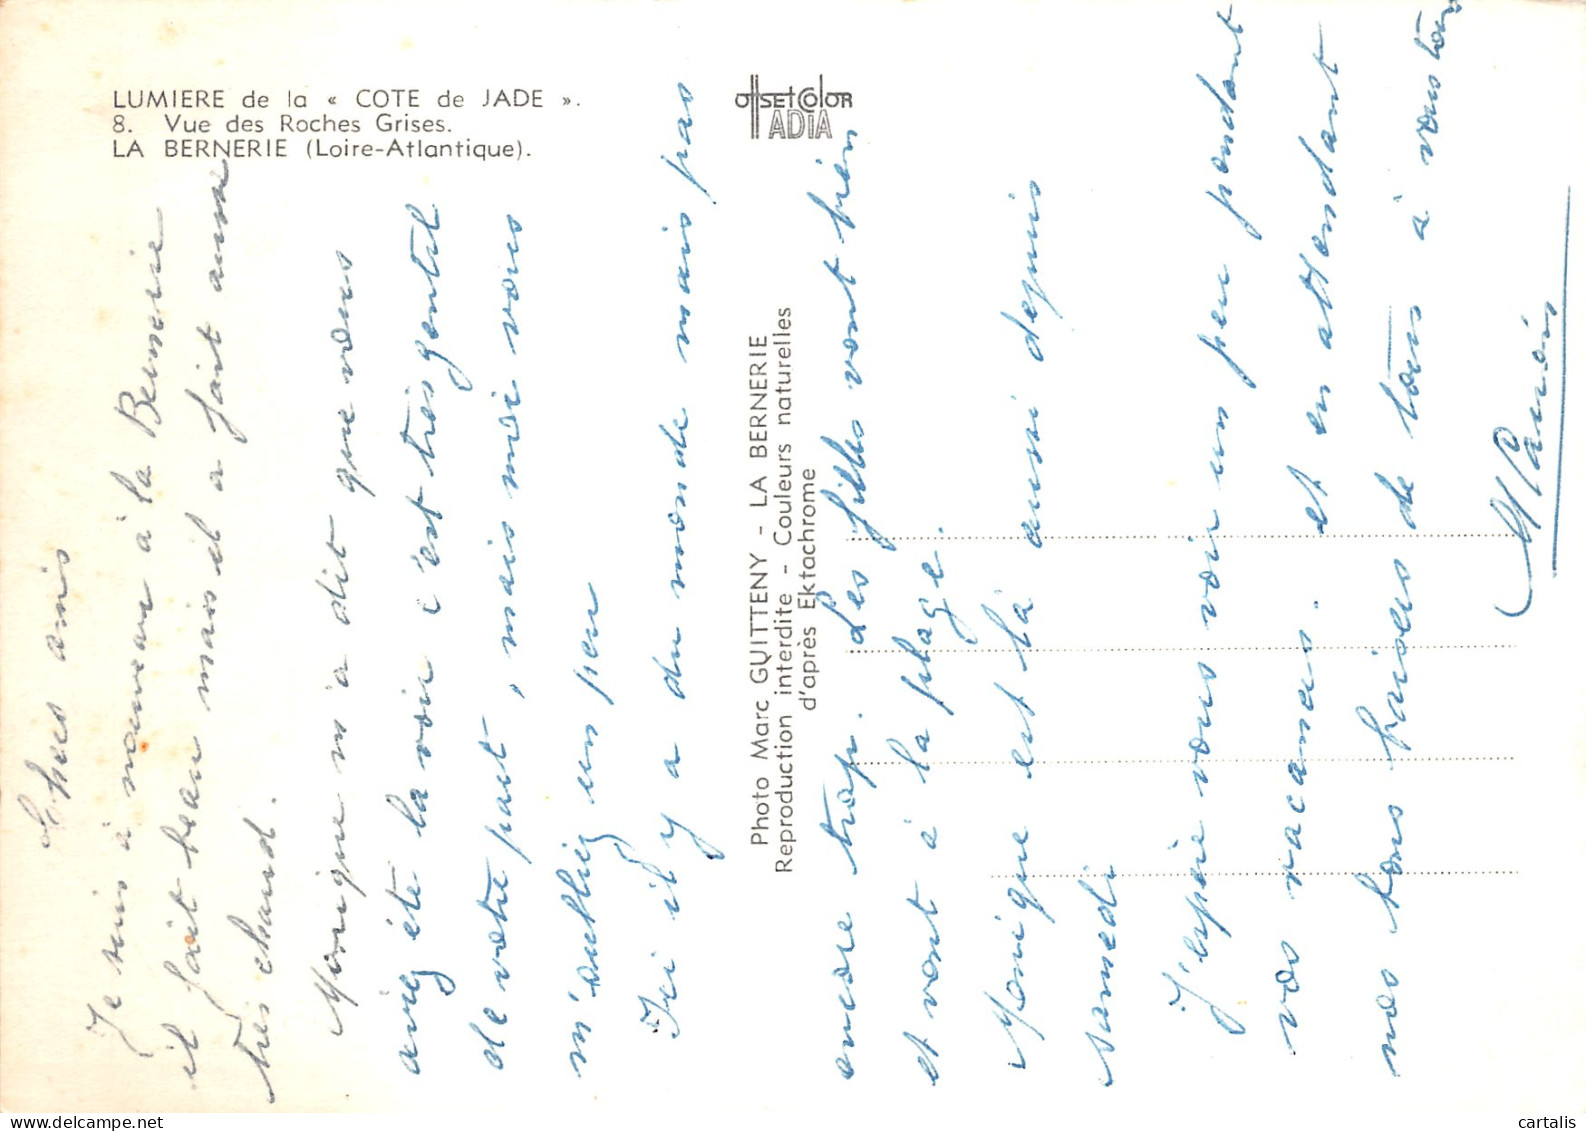 LUMIERE de la « COTE de JADE ».
8. Vue des Roches Grises.
LA BERNERIE (Loire-Atlantique).
OffSETCOLOR
ADIA
Photo Marc GUITTENY - LA BERNERIE
Reproduction interdite - Couleurs naturelles
d'après Ektachrome
Chers amis
Je suis à nouveau à la Bernerie
il fait beau mais il a fait aussi
très chaud.
Monique m'a dit que vous
aviez été la voir c'est très gentil
de votre part, mais moi vous
m'oubliez un peu
Ici il y a du monde mais pas
encore trop. Les filles vont bien
et vont à la plage.
Monique est là aussi depuis
samedi
J'espère vous voir un peu pendant
vos vacances. et en attendant
nos bons baisers de tous à vous tous